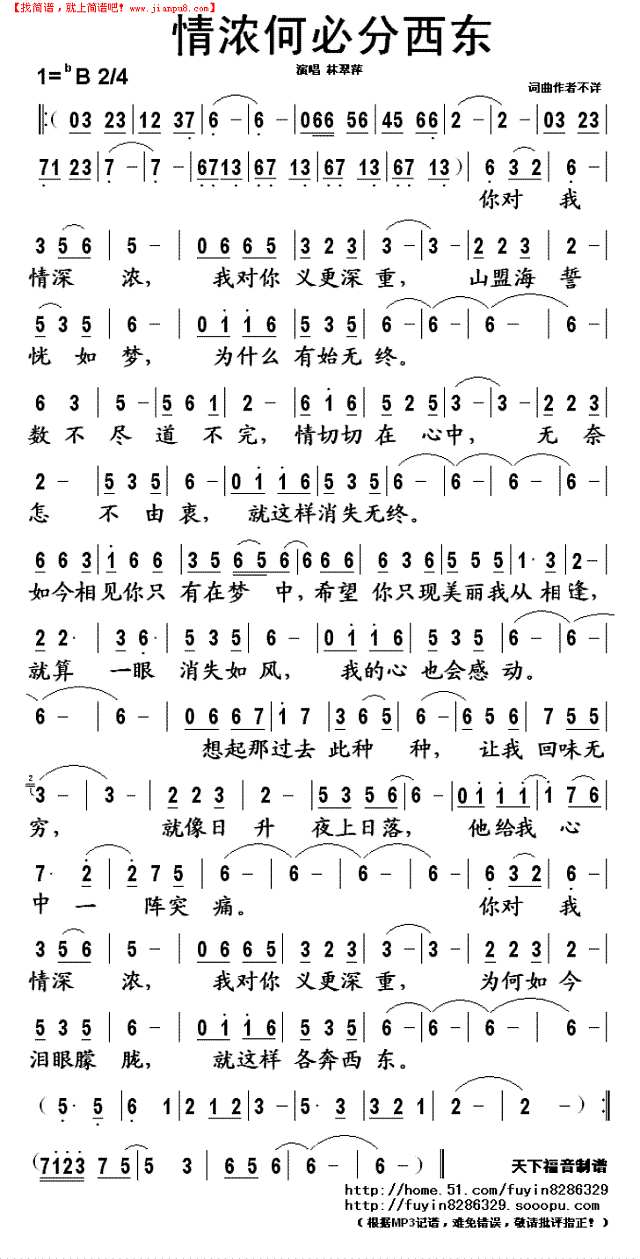 【找简谱，就上简谱吧！www.jianpu8.com】
情浓何必分西东
1=ᵇB 2/4
演唱 林翠萍
词曲作者不详
‖:( 03 23 | 12 37 | 6 – | 6 – | 066 56 | 45 66 | 2 – | 2 – | 03 23 |
71 23 | 7 – | 7 – | 6713 | 67 13 | 67 13 | 67 13 ) | 6 32 | 6 –
你对 我
3 56 | 5 – | 0 6 6 5 | 3 2 3 | 3 – | 3 – | 2 2 3 | 2 –
情深 浓， 我对你 义更深 重， 山盟海 誓
5 3 5 | 6 – | 0 1 1 6 | 5 3 5 | 6 – | 6 – | 6 – | 6 –
恍 如 梦， 为什么 有始无 终。
6 3 | 5 – | 5 6 1 | 2 – | 6 1 6 | 5 2 5 | 3 – | 3 – | 2 2 3
数 不 尽 道 不 完， 情切切 在 心中， 无 奈
2 – | 5 3 5 | 6 – | 0 1 1 6 | 5 3 5 | 6 – | 6 – | 6 – | 6 –
怎 不 由 衷， 就这样消失无终。
6 6 3 | 1 6 6 | 3 5 6 5 6 | 6 6 6 | 6 3 6 | 5 5 5 | 1· 3 | 2 –
如今相见你只 有在梦 中，希望 你只现美丽我从 相逢，
2 2· | 3 6· | 5 3 5 | 6 – | 0 1 1 6 | 5 3 5 | 6 – | 6 –
就算 一眼 消失如 风， 我的心 也会感 动。
6 – | 6 – | 0 6 6 7 | 1 7 | 3 6 5 | 5 – | 6 5 6 | 7 5 5
想起那过去 此种 种， 让我 回味无
3 – | 3 – | 2 2 3 | 2 – | 5 3 5 6 | 6 – | 0 1 1 1 | 1 7 6
穷， 就像日 升 夜上日落， 他给我 心
7· 2 | 2 7 5 | 6 – | 6 – | 6 – | 6 – | 6 32 | 6 –
中 一 阵突 痛。 你对 我
3 5 6 | 5 – | 0 6 6 5 | 3 2 3 | 3 – | 3 – | 2 2 3 | 2 –
情深 浓， 我对你 义更深 重， 为何如 今
5 3 5 | 6 – | 0 1 1 6 | 5 3 5 | 6 – | 6 – | 6 – | 6 –
泪眼朦 胧， 就这样 各奔西 东。
( 5· 5 | 6 1 | 2 1 2 | 3 – | 5· 3 | 3 2 1 | 2 – | 2 – ) :‖
(7123 7 5 | 5 3 | 6 5 6 | 6 – | 6 – )‖
天下福音制谱
http://home.51.com/fuyin8286329
http://fuyin8286329.sooopu.com
（根据MP3记谱，难免错误，敬请批评指正！）